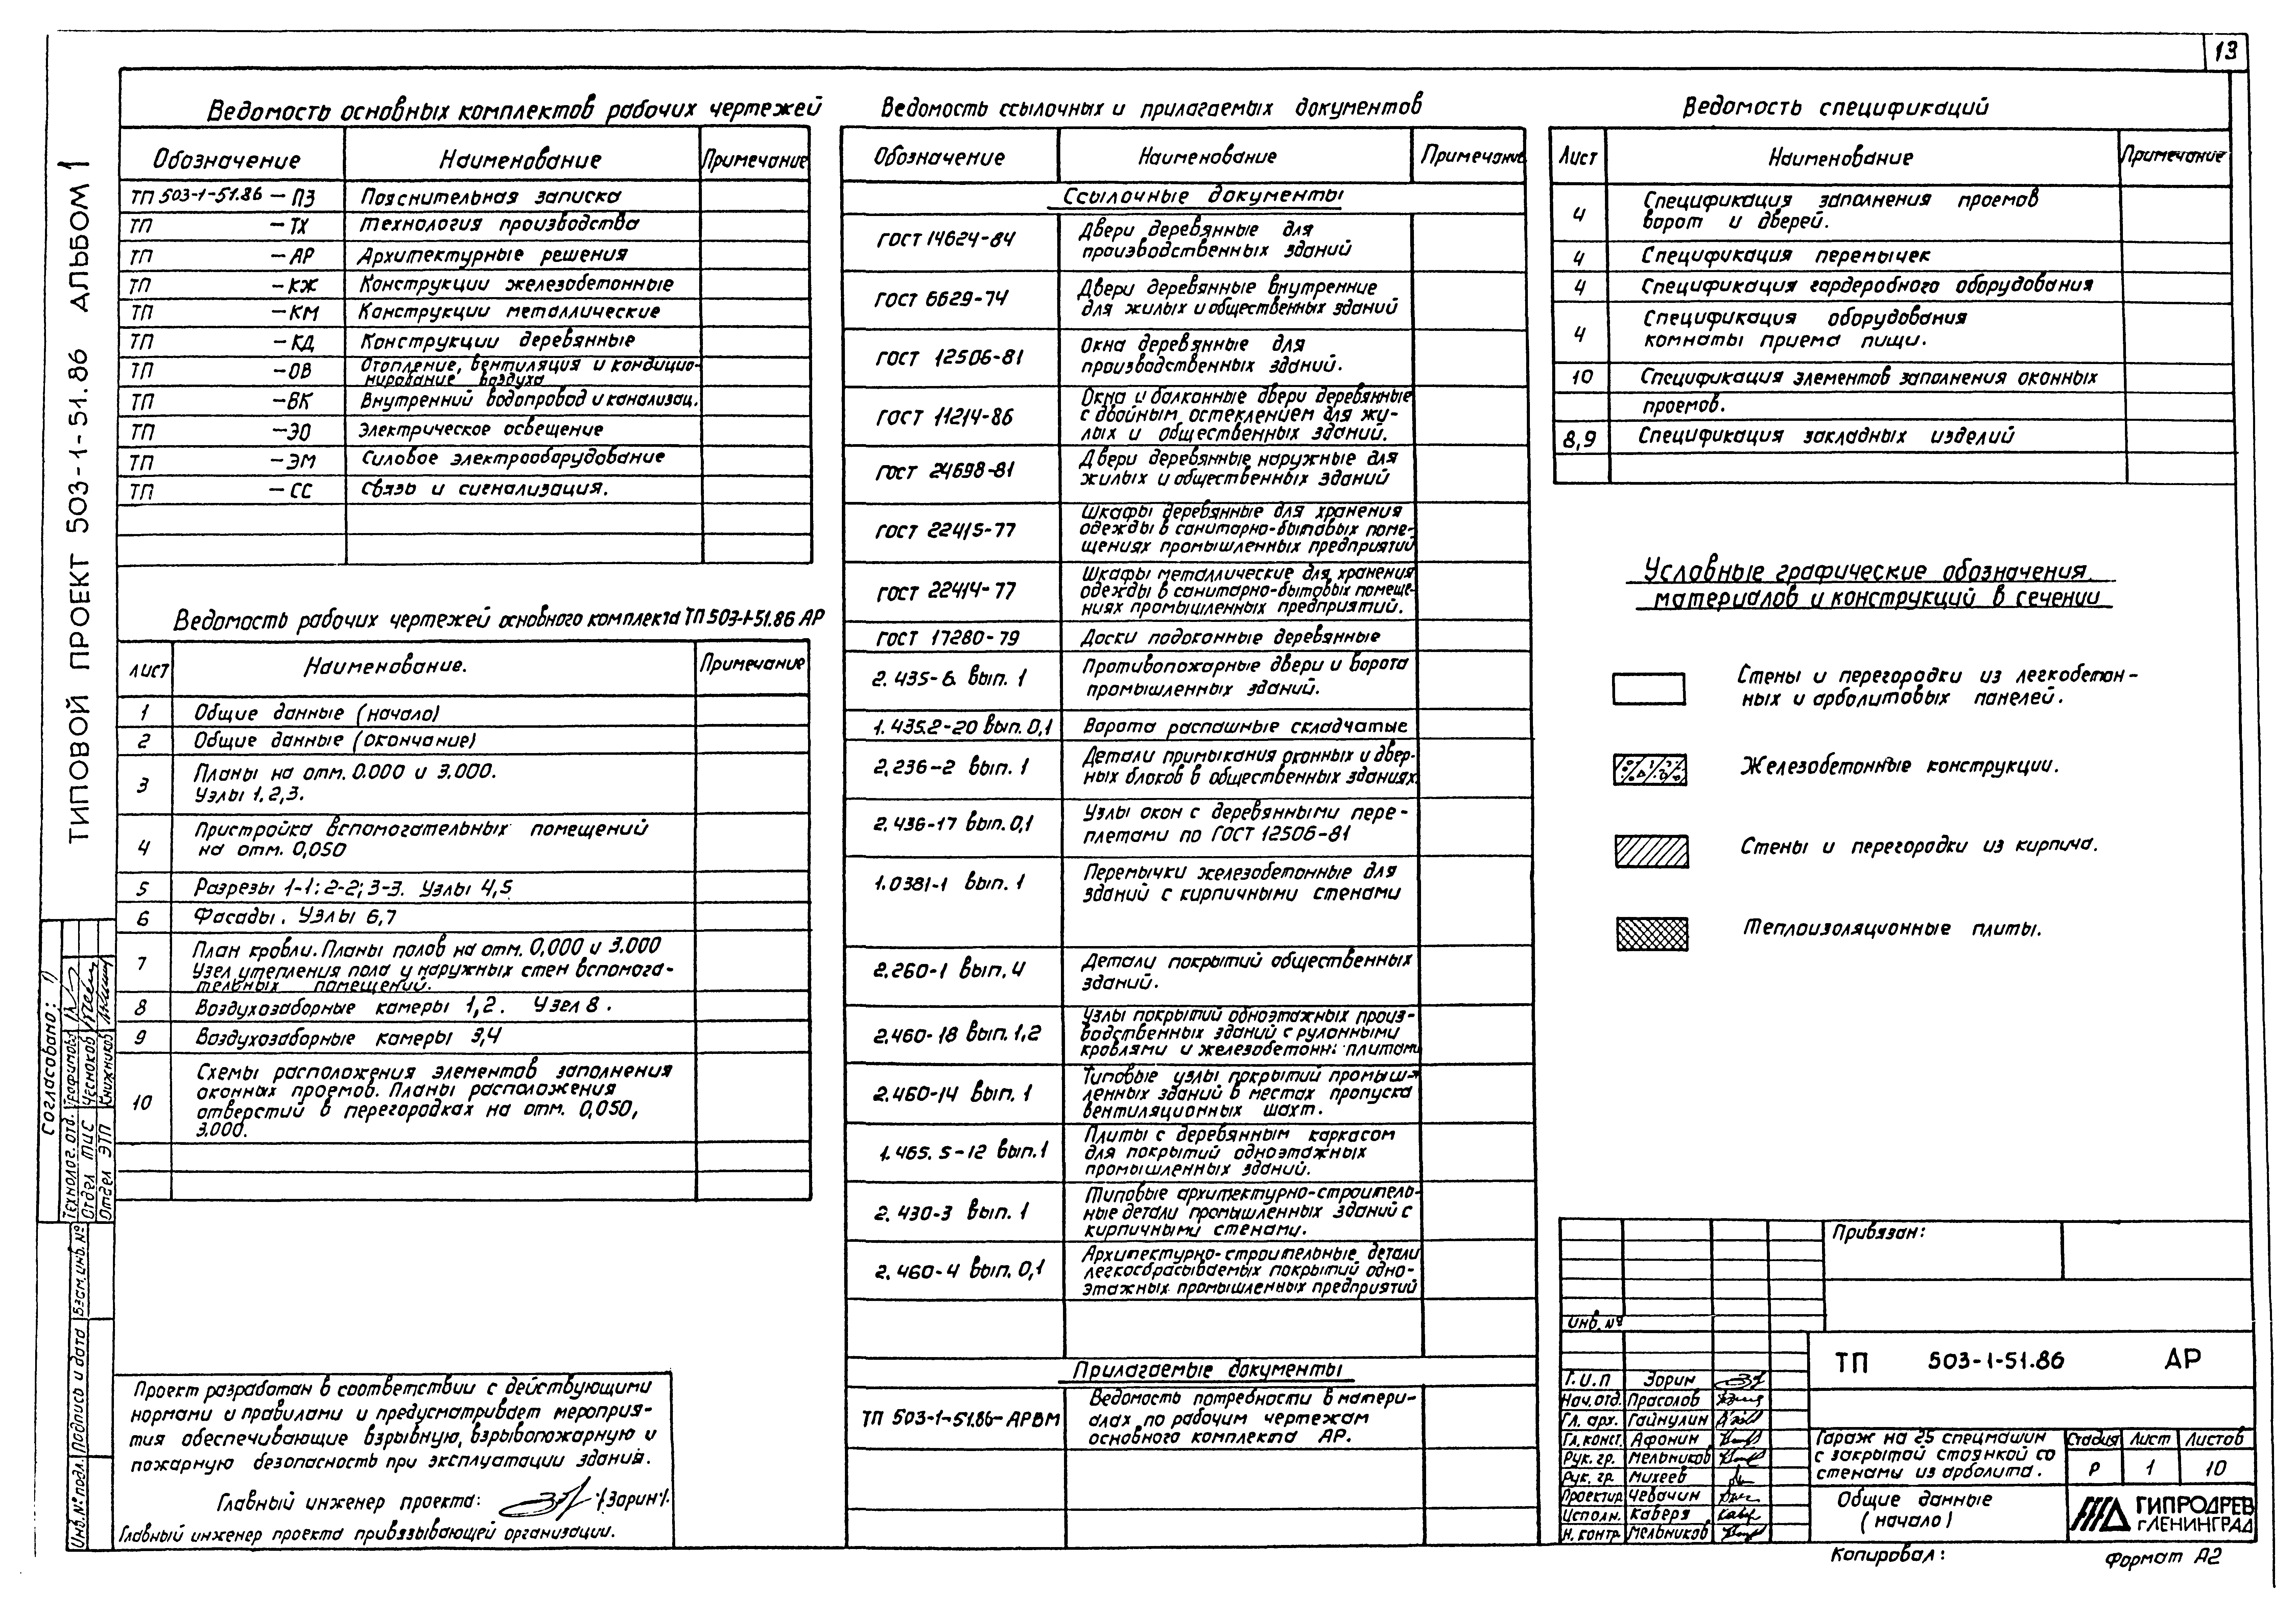 13
ТИПОВОЙ ПРОЕКТ 503-1-51.86 АЛЬБОМ 1
Ведомость основных комплектов рабочих чертежей
Обозначение Наименование Примечание
ТП 503-1-51.86 - ПЗ Пояснительная записка
ТП - ТХ Технология производства
ТП - АР Архитектурные решения
ТП - КЖ Конструкции железобетонные
ТП - КМ Конструкции металлические
ТП - КД Конструкции деревянные
ТП - ОВ Отопление, вентиляция и кондицио-
нирование воздуха
ТП - ВК Внутренний водопровод и канализац.
ТП - ЭО Электрическое освещение
ТП - ЭМ Силовое электрооборудование
ТП - СС Связь и сигнализация.
Ведомость рабочих чертежей основного комплекта ТП 503-1-51.86 АР
Лист Наименование. Примечание
1 Общие данные (начало)
2 Общие данные (окончание)
3 Планы на отм. 0.000 и 3.000.
Узлы 1,2,3.
4 Пристройка вспомогательных помещений
на отм. 0,050
5 Разрезы 1-1; 2-2; 3-3. Узлы 4,5
6 Фасады. Узлы 6,7
7 План кровли. Планы полов на отм. 0,000 и 3.000
Узел утепления пола у наружных стен вспомога-
тельных помещений.
8 Воздухозаборные камеры 1,2. Узел 8.
9 Воздухозаборные камеры 3,4
10 Схемы расположения элементов заполнения
оконных проемов. Планы расположения
отверстий в перегородках на отм. 0,050,
3.000.
Проект разработан в соответствии с действующими
нормами и правилами и предусматривает мероприя-
тия обеспечивающие взрывную, взрывопожарную и
пожарную безопасность при эксплуатации здания.
Главный инженер проекта: /Зорин/.
Главный инженер проекта привязывающей организации.
Ведомость ссылочных и прилагаемых документов
Обозначение Наименование Примечание
Ссылочные документы
ГОСТ 14624-84 Двери деревянные для
производственных зданий
ГОСТ 6629-74 Двери деревянные внутренние
для жилых и общественных зданий
ГОСТ 12506-81 Окна деревянные для
производственных зданий.
ГОСТ 11214-86 Окна и балконные двери деревянные
с двойным остеклением для жи-
лых и общественных зданий.
ГОСТ 24698-81 Двери деревянные наружные для
жилых и общественных зданий
ГОСТ 22415-77 Шкафы деревянные для хранения
одежды в санитарно-бытовых поме-
щениях промышленных предприятий
ГОСТ 22414-77 Шкафы металлические для хранения
одежды в санитарно-бытовых помеще-
ниях промышленных предприятий.
ГОСТ 17280-79 Доски подоконные деревянные
2.435-6 вып. 1 Противопожарные двери и ворота
промышленных зданий.
1.435.2-20 вып. 0,1 Ворота распашные складчатые
2.236-2 вып. 1 Детали примыкания оконных и двер-
ных блоков в общественных зданиях
2.436-17 вып. 0,1 Узлы окон с деревянными пере-
плетами по ГОСТ 12506-81
1.0381-1 вып. 1 Перемычки железобетонные для
зданий с кирпичными стенами
2.260-1 вып. 4 Детали покрытий общественных
зданий.
2.460-18 вып. 1,2 Узлы покрытий одноэтажных произ-
водственных зданий с рулонными
кровлями и железобетонн. плитами
2.460-14 вып. 1 Типовые узлы покрытий промыш-
ленных зданий в местах пропуска
вентиляционных шахт.
1.465.5-12 вып. 1 Плиты с деревянным каркасом
для покрытий одноэтажных
промышленных зданий.
2.430-3 вып. 1 Типовые архитектурно-строитель-
ные детали промышленных зданий с
кирпичными стенами.
2.460-4 вып. 0,1 Архитектурно-строительные детали
легкосбрасываемых покрытий одно-
этажных промышленных предприятий
Прилагаемые документы
ТП 503-1-51.86-АРВМ Ведомость потребности в матери-
алах по рабочим чертежам
основного комплекта АР.
Ведомость спецификаций
Лист Наименование Примечание
4 Спецификация заполнения проемов
ворот и дверей.
4 Спецификация перемычек
4 Спецификация гардеробного оборудования
4 Спецификация оборудования
комнаты приема пищи.
10 Спецификация элементов заполнения оконных
проемов.
8,9 Спецификация закладных изделий
Условные графические обозначения
материалов и конструкций в сечении
Стены и перегородки из легкобетон-
ных и арболитовых панелей.
Железобетонные конструкции.
Стены и перегородки из кирпича.
Теплоизоляционные плиты.
Привязан:
Инв. №
ТП 503-1-51.86 АР
Г.И.П Зорин
Нач. отд. Прасолов
Гл. арх. Гайнулин
Гл. конст. Афонин
Рук. гр. Мельников
Рук. гр. Михеев
Проектир. Чевачин
Исполн. Каверя
Н. контр. Мельников
Гараж на 25 спецмашин
с закрытой стоянкой со
стенами из арболита.
Стадия Лист Листов
Р 1 10
Общие данные
(начало)
ГИПРОДРЕВ
г. ЛЕНИНГРАД
Копировал:
Формат А2
Согласовано:
Технолог. отд. Трофимова
Отдел ТИС Чесноков
Отдел ЭТП Книжников
Инв. № подл. Подпись и дата Взам. инв. №